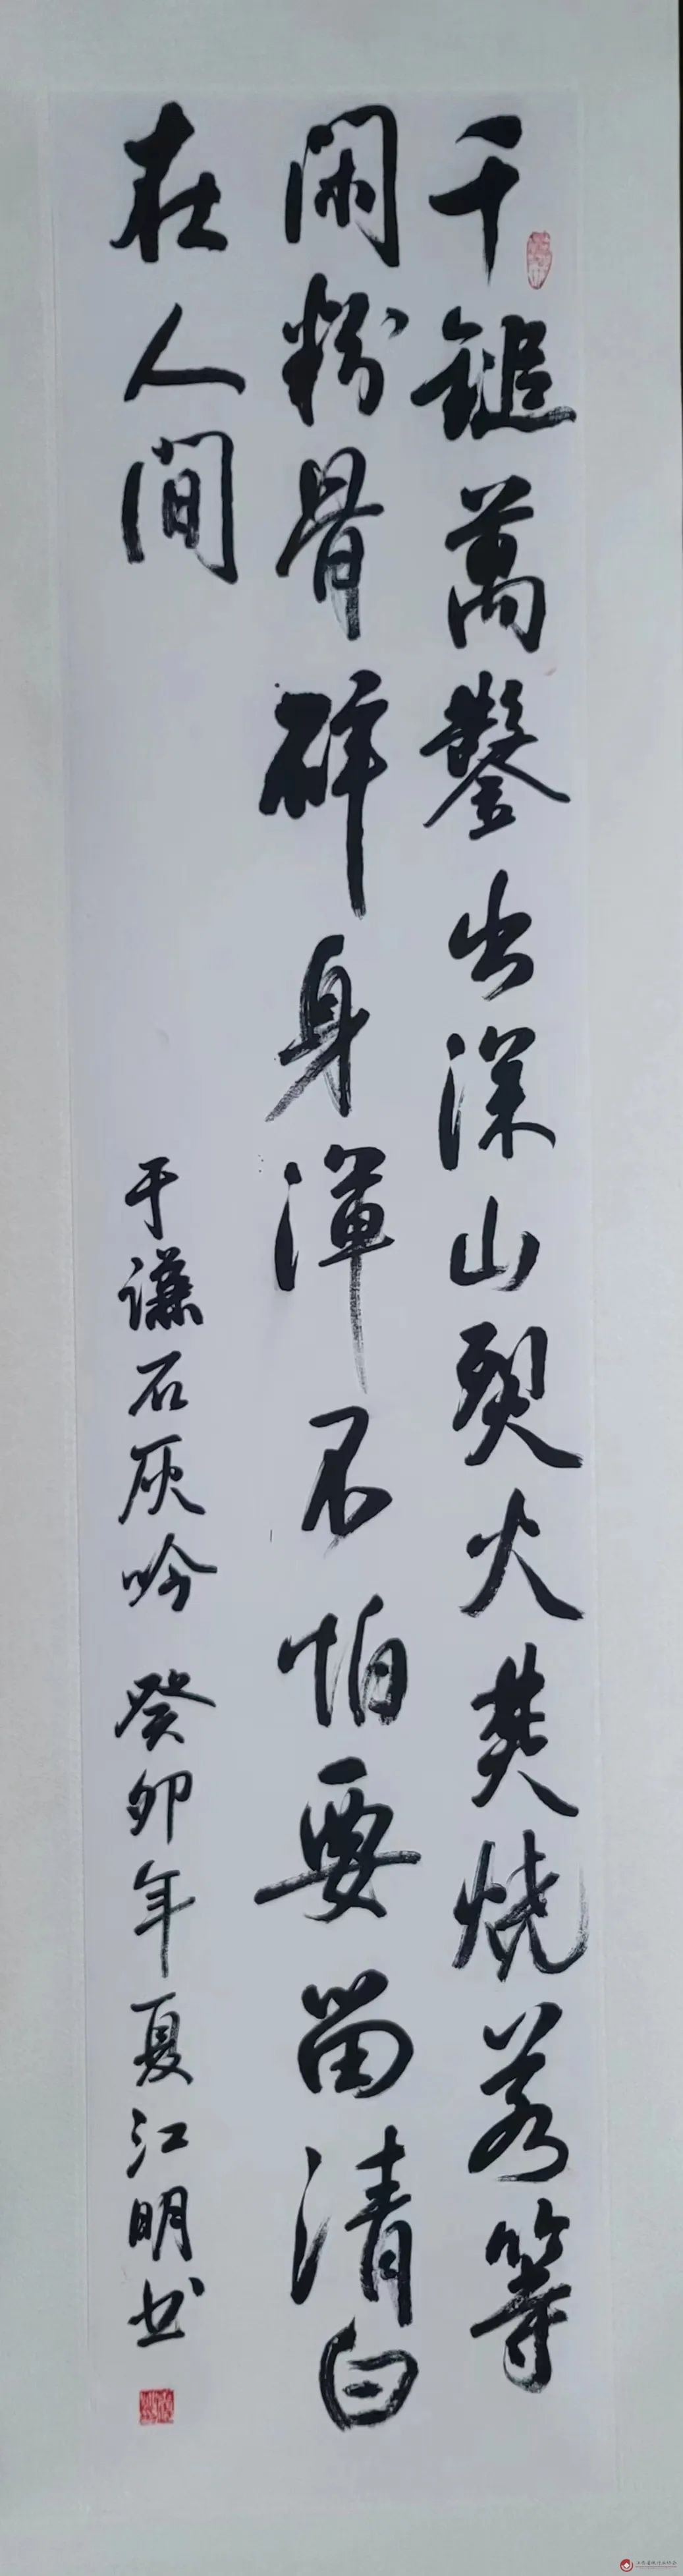 千鎚萬鑿出深山烈火焚燒若等
閑粉骨碎身渾不怕要留清白
在人間
于謙石灰吟 癸卯年夏江明书